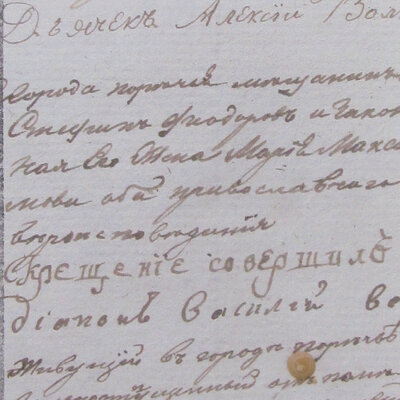 Дьячекъ Алексій Вол
города порѣчья мѣщанинъ
Ѳеодоровъ и Закон
ная Его Жена Марія Макси
мова оба православнаго
вѣроисповѣданія
крещеніе совершилъ
діаконъ Василій
Живущій въ городѣ порѣчьѣ